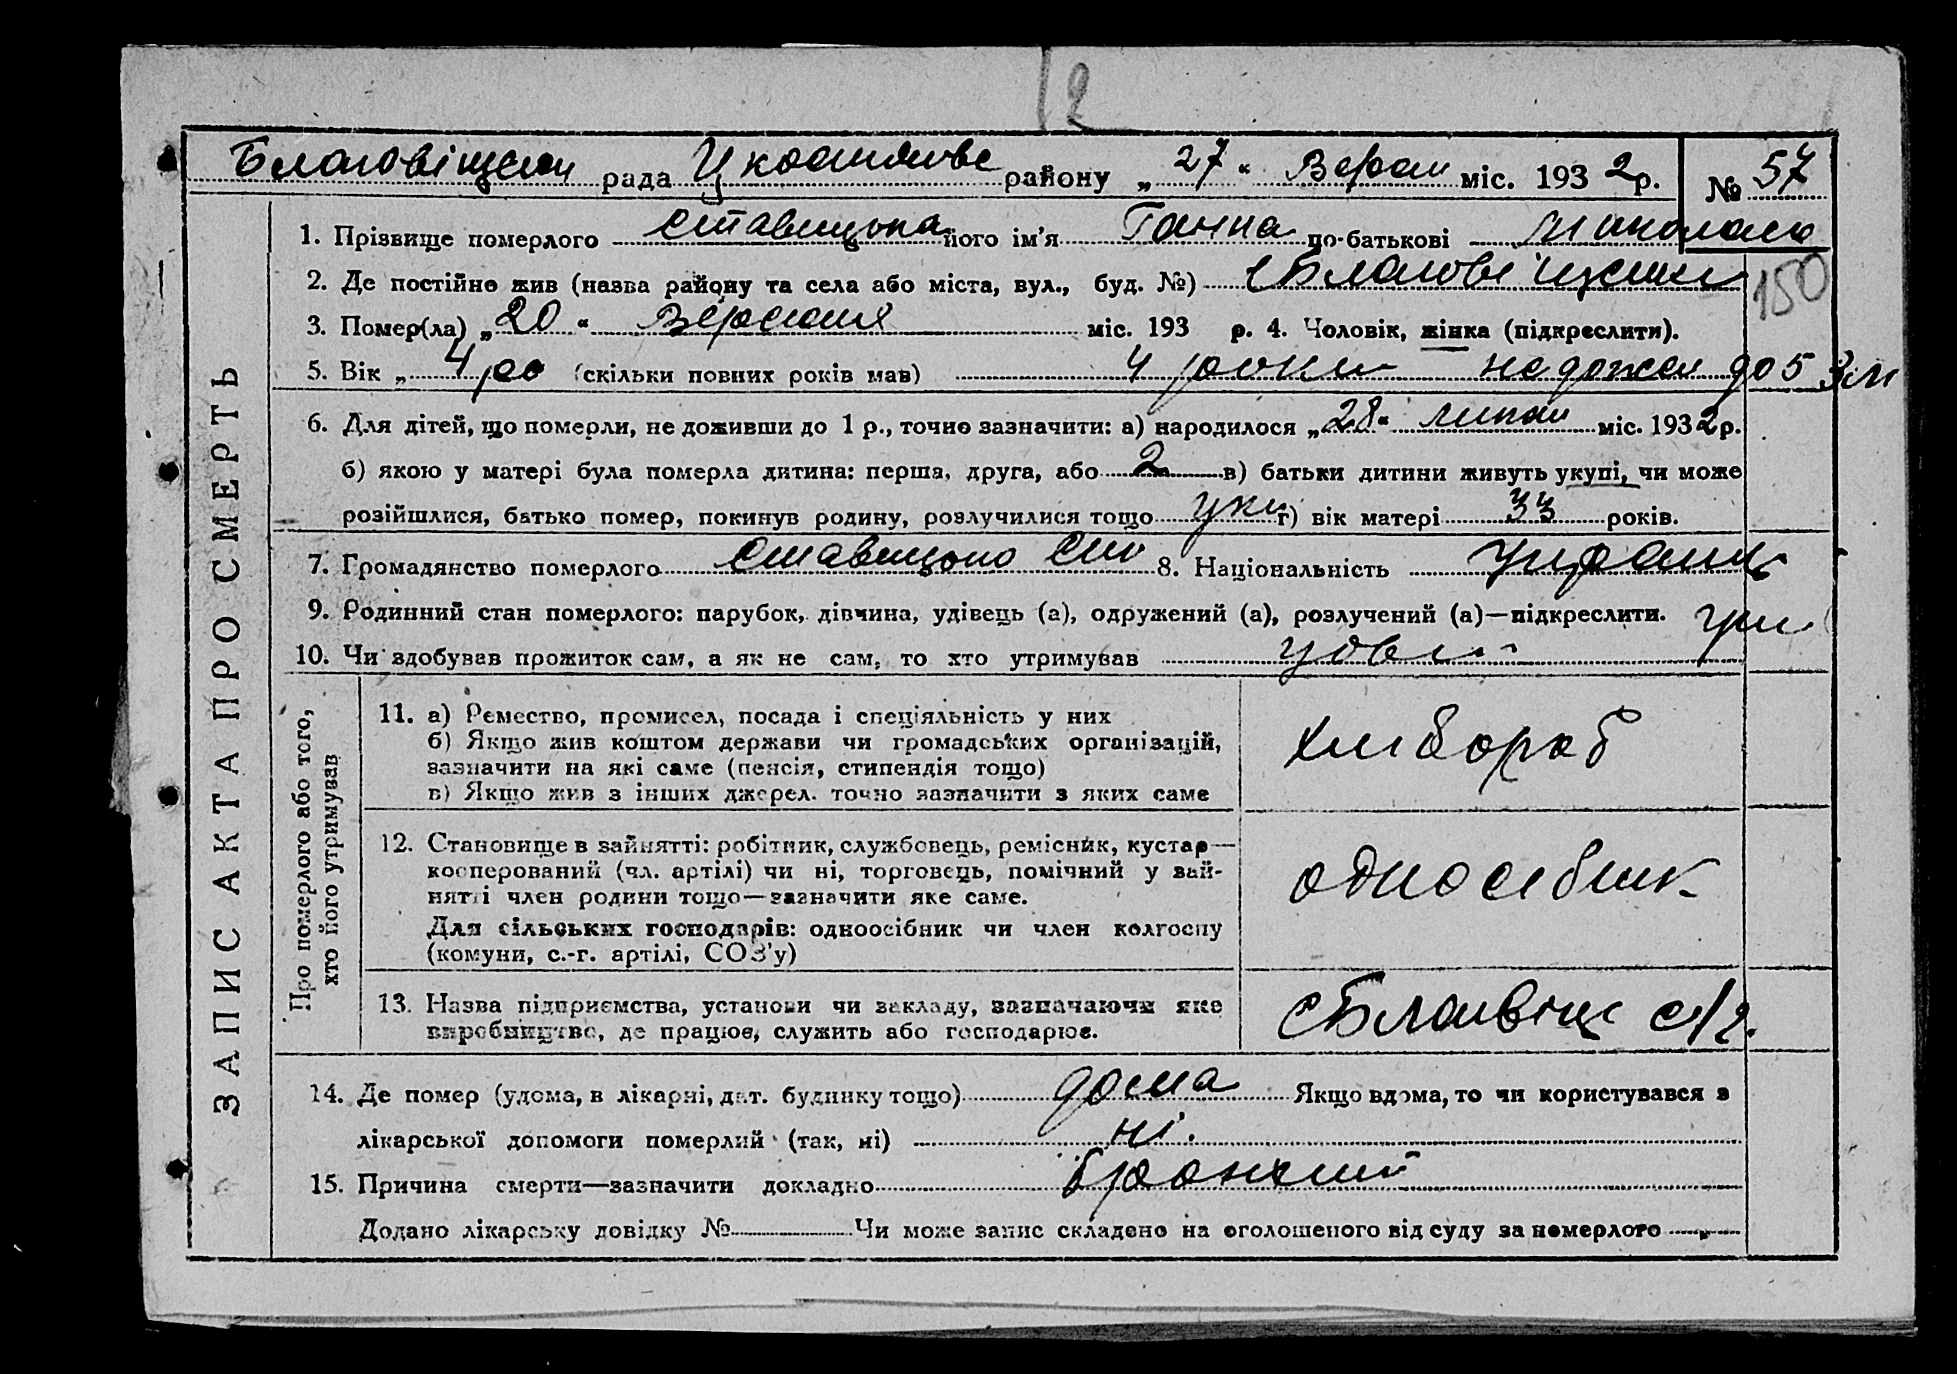 2
Благовіщен рада району „27“ Верес міс. 1932р. № 57
1. Прізвище померлого Ставицька його ім'я Ганна по-батькові Миколаев
150
2. Де постійно жив (назва району та села або міста, вул., буд. №) с Благовіщен
3. Помер(ла) „20“ Вересня міс. 193 р. 4. Чоловік, жінка (підкреслити).
5. Вік „4 ро (скільки повних років мав) 4 роки не дожел до 5 3 м
6. Для дітей, що померли, не доживши до 1 р., точно зазначити: а) народилося „28“ липня міс. 1932р.
б) якою у матері була померла дитина: перша, друга, або 2 в) батьки дитини живуть укупі, чи може
розійшлися, батько помер, покинув родину, розлучилися тощо уку г) вік матері 33 років.
7. Громадянство померлого Ставицько 8. Національність Украин
9. Родинний стан померлого: парубок, дівчина, удівець (а), одружений (а), розлучений (а)—підкреслити.
10. Чи здобував прожиток сам, а як не сам, то хто утримував
ЗАПИС АКТА ПРО СМЕРТЬ
Про померлого або того,
хто його утримував
11. а) Ремество, промисел, посада і спеціяльність у них
б) Якщо жив коштом держави чи громадських організацій,
зазначити на які саме (пенсія, стипендія тощо)
в) Якщо жив з інших джерел. точно зазначити з яких саме
хлібороб
12. Становище в зайнятті: робітник, службовець, ремісник, кустар—
кооперований (чл. артілі) чи ні, торговець, помічний у зай-
нятті член родини тощо—зазначити яке саме.
Для сільських господарів: одноосібник чи член колгоспу
(комуни, с.-г. артілі, СОЗ'у)
односібник
13. Назва підприємства, установи чи закладу, зазначаючи яке
виробництво, де працює, служить або господарює.
с Благовіщ с/г.
14. Де помер (удома, в лікарні, дит. будинку тощо) дома Якщо вдома, то чи користувався з
лікарської допомоги померлий (так, ні) ні.
15. Причина смерти—зазначити докладно бронхит
Додано лікарську довідку № Чи може запис складено на оголошеного від суду за померлого